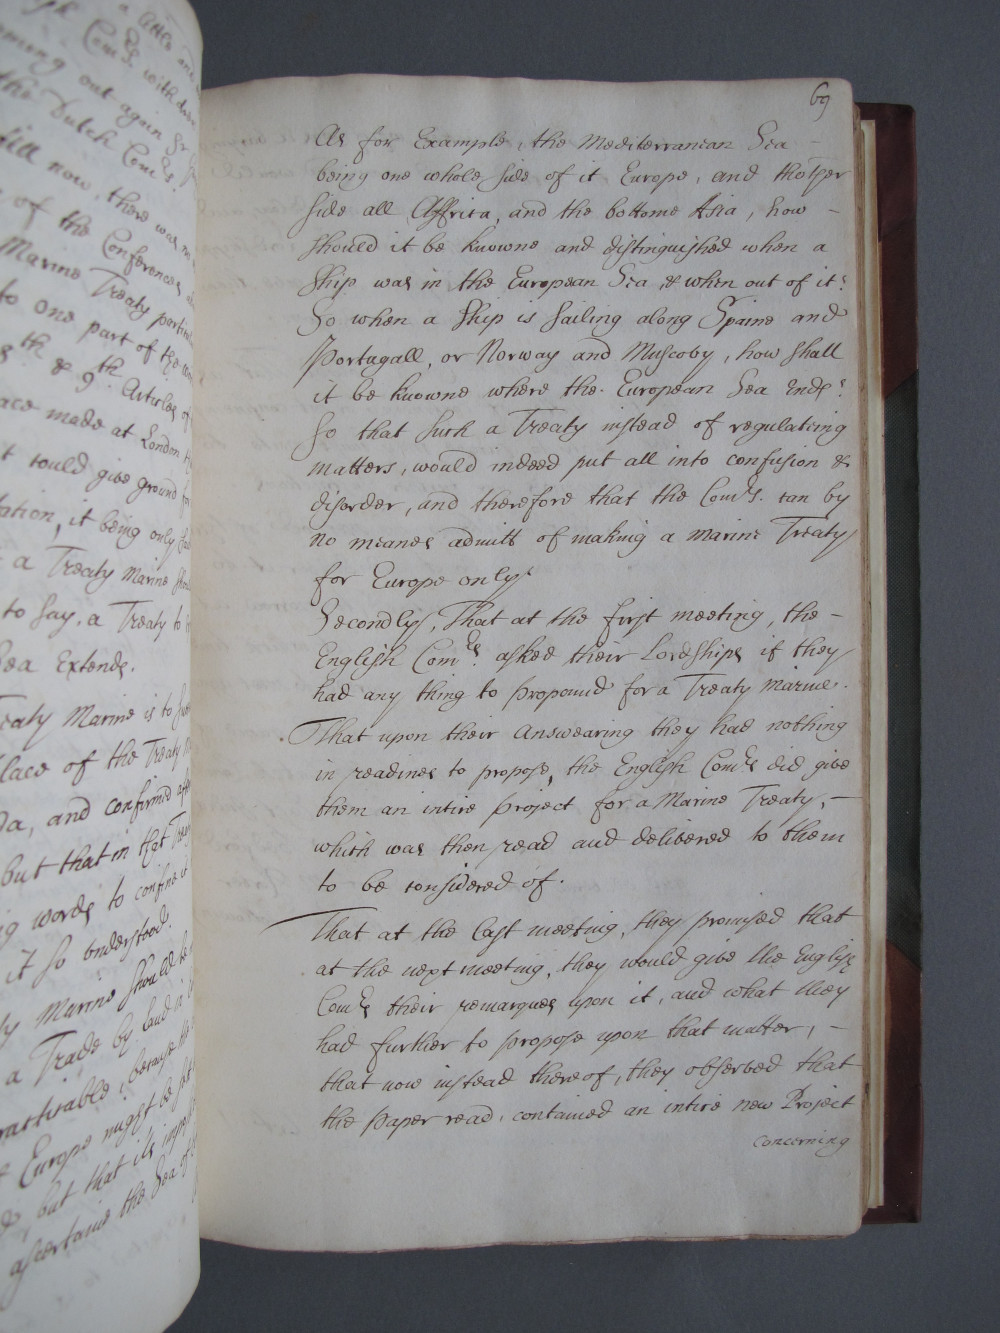 a little and
Com.rs with
among out again Sr
the Dutch Com.rs.
now, there was
of the Conferences
Marine Treaty particul
to one part of the
th & 9th Articles of
ace made at London
t could give ground for
ation, it being only
a Treaty Marine
to say, a Treaty to
Sea Extends.
reaty Marine is to
lace of the Treaty
da, and confirmed
but that in that
g words to confine it
it so understood.
ty Marine should be
a Trade by land is
racticable; because
Europe might be set
but that its
ascertaine the Sea of
69
As for Example, the Mediterranean Sea –
being one whole side of it Europe, and thother
side all Affrica, and the bottome Asia, how –
should it be knowne and distinguished when a
Ship was in the European Sea, & when out of it?
So when a Ship is sailing along Spaine and
Portugall, or Norway and Muscovy, how shall
it be knowne where the European Sea Ends?
So that such a Treaty instead of regulating
matters, would indeed put all into confusion &
disorder, and therefore that the Com.rs can by
no meanes admitt of making a marine Treaty
for Europe only.
Secondly, That at the first meeting, the –
English Com.rs asked their Lordships if they
had any thing to propound for a Treaty marine.
That upon their answearing they had nothing
in readines to propose, the English Com.rs did give
them an intire Project for a Marine Treaty, –
which was then read and delivered to them
to be considered of.
That at the last meeting, they promised that
at the next meeting, they would give the English
Com.rs their remarques upon it, and what they
had further to propose upon that matter, –
that now instead thereof, they observed that
the paper read, contained an intire new Project
concerning